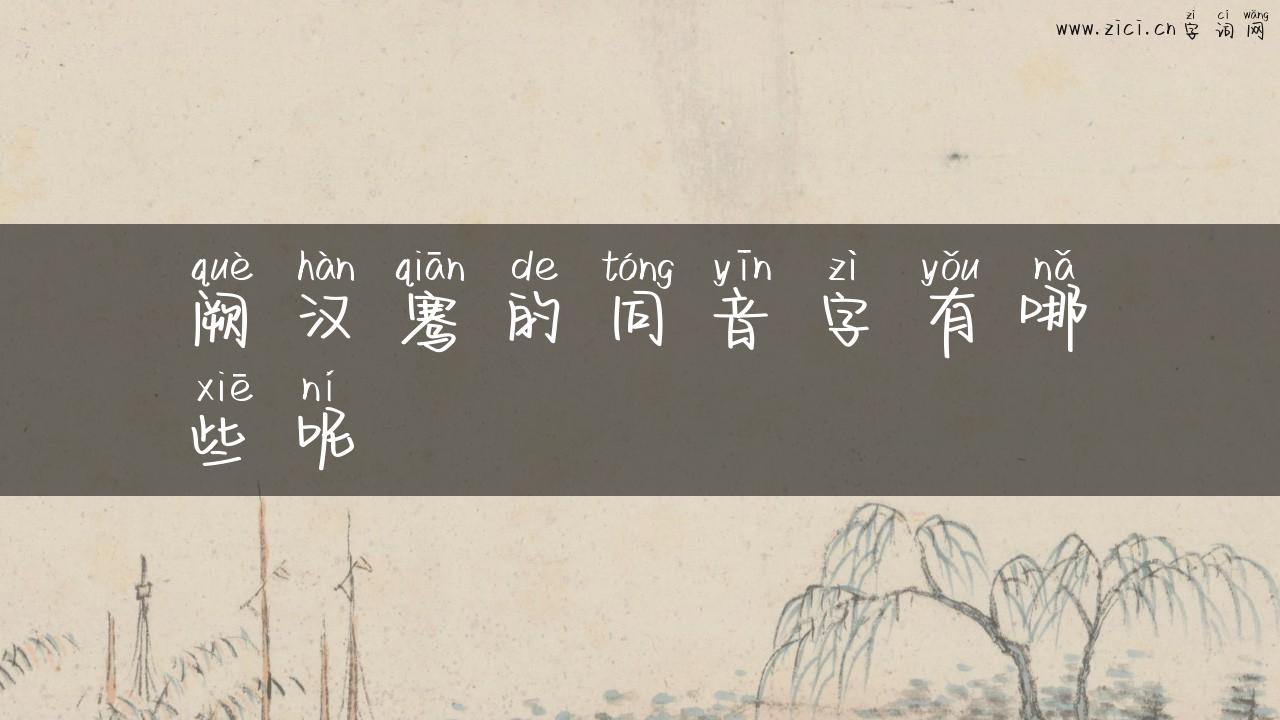 zì cí wǎng
www.zici.cn 字词网
què hàn qiān de tóng yīn zì yǒu nǎ
阙汉骞的同音字有哪
xiē ní
些呢